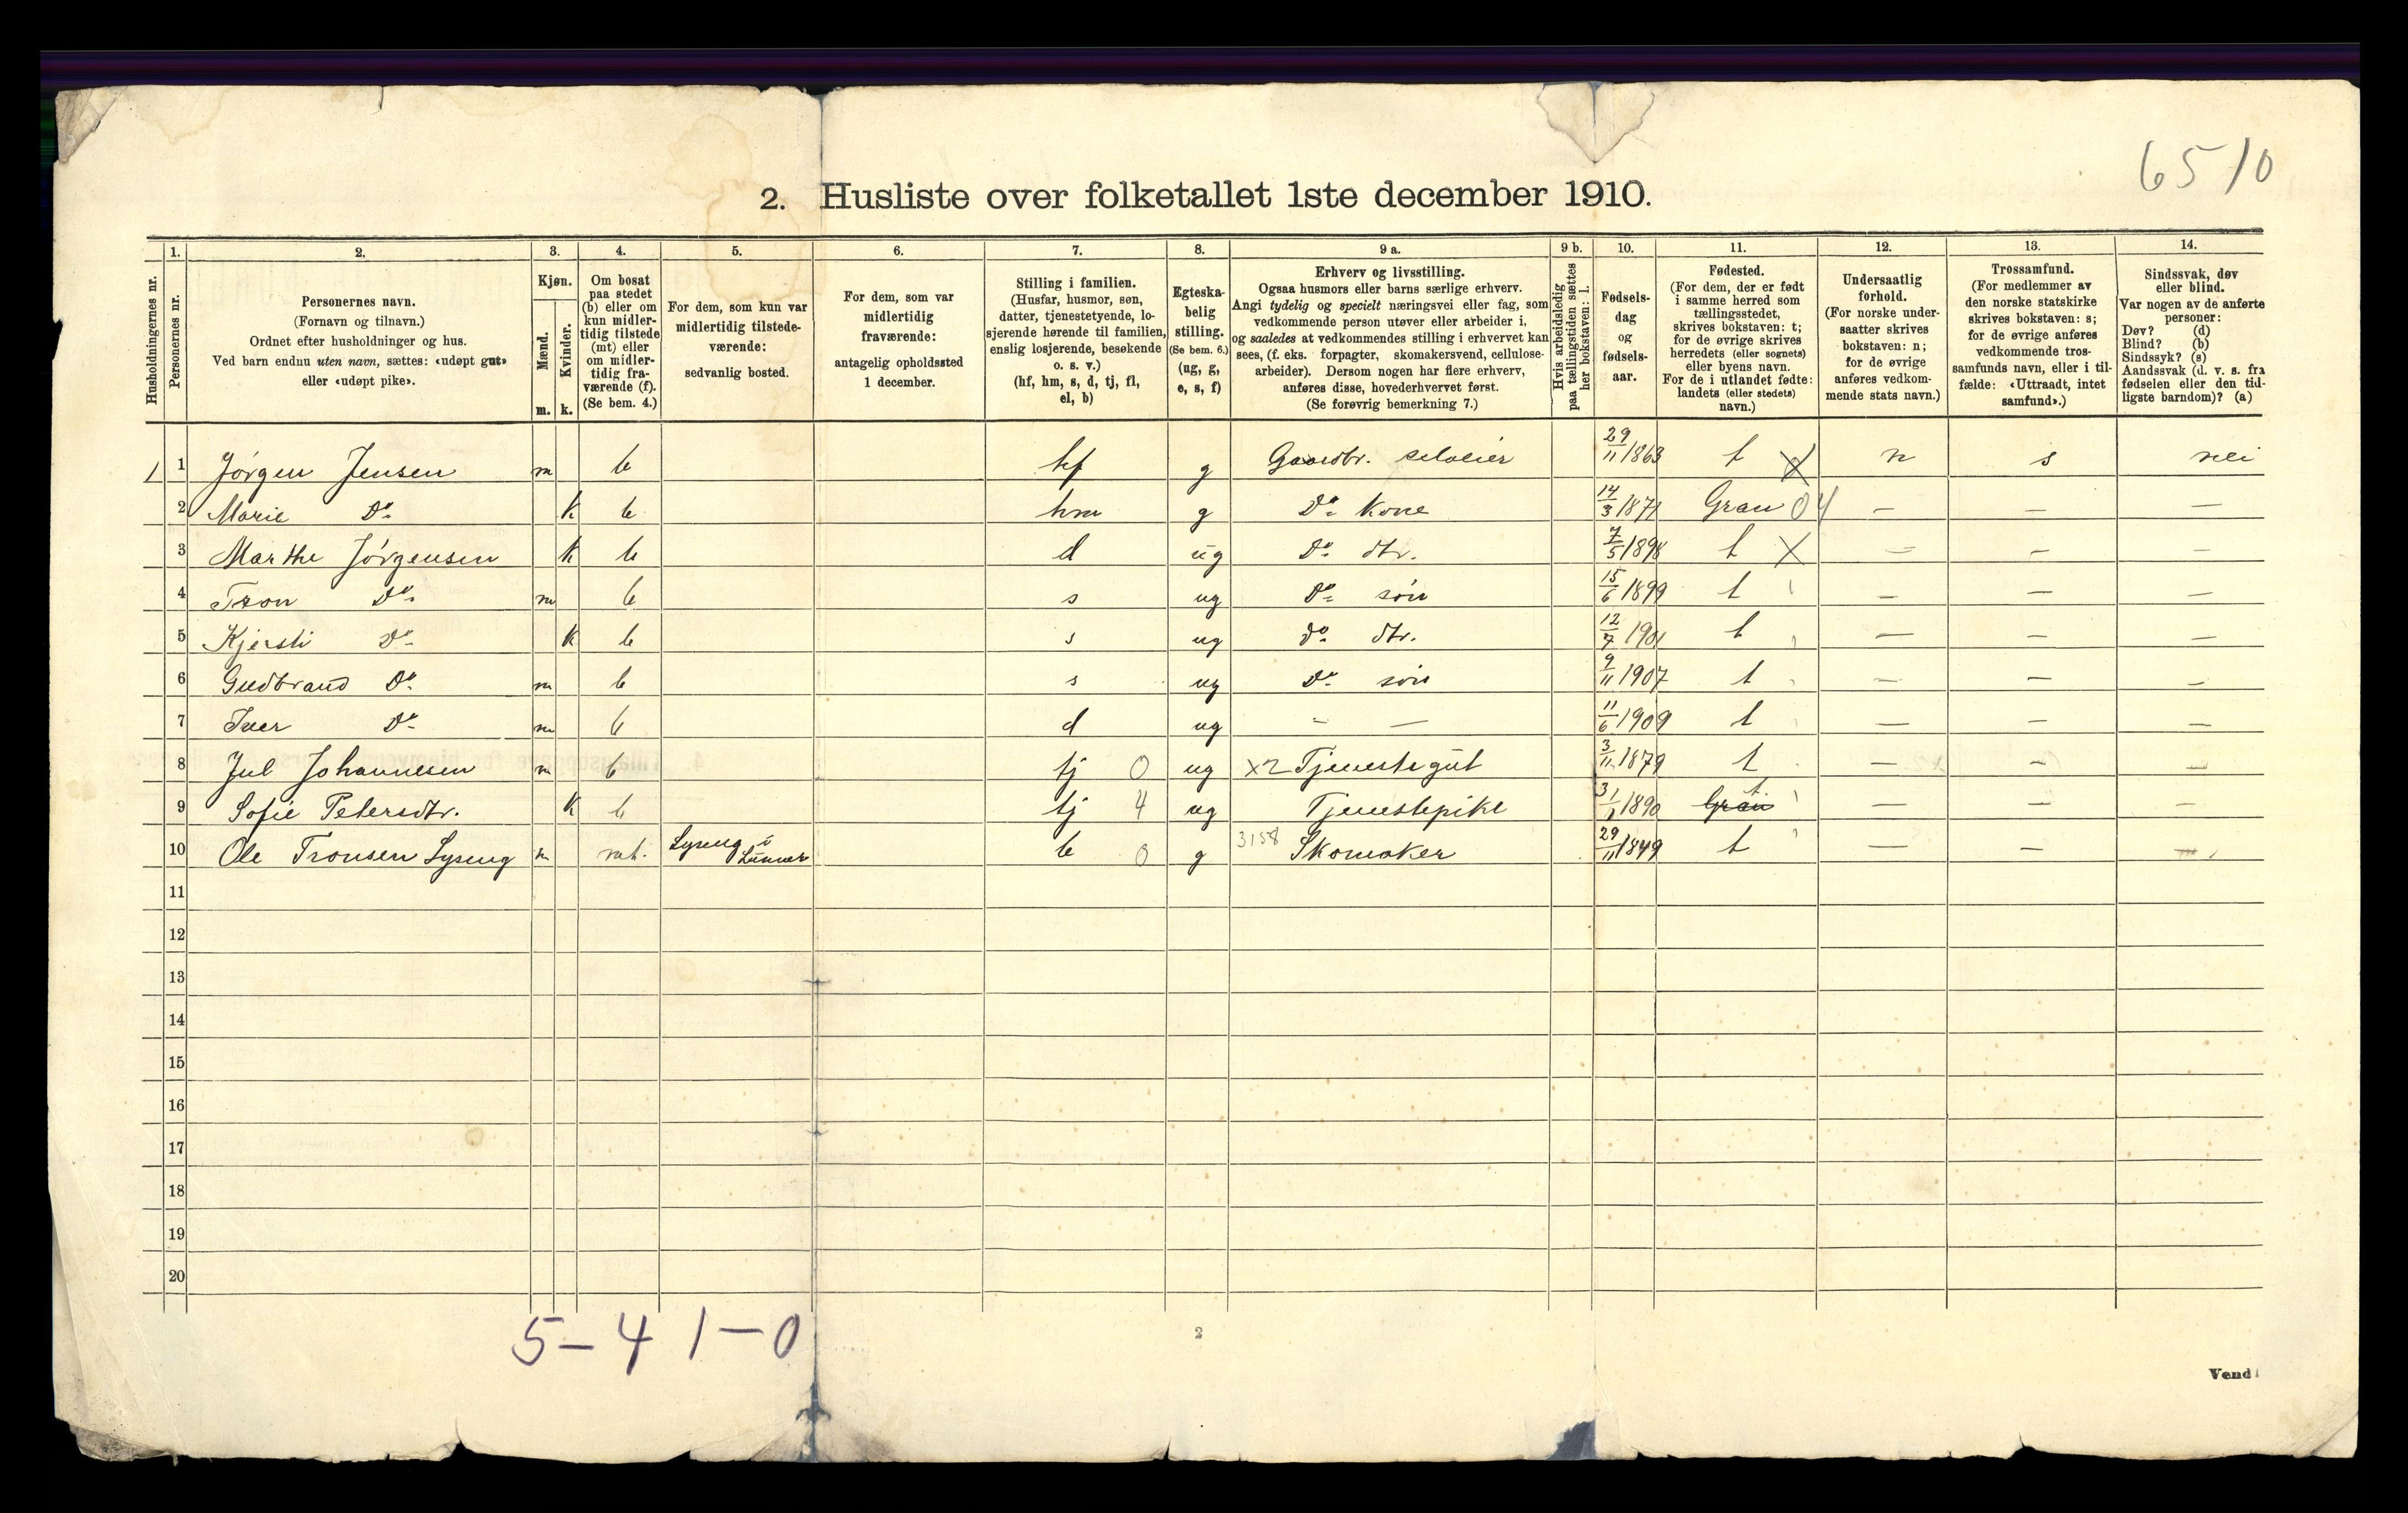 6510
2. Husliste over folketallet 1ste december 1910.
Husholdningernes nr.
1.
Personernes nr.
2.
Personernes navn.
(Fornavn og tilnavn.)
Ordnet efter husholdninger og hus.
Ved barn endnu uten navn, sættes: «udøpt gut»
eller «udøpt pike».
3.
Kjøn.
Mænd.
Kvinder.
m. k.
4.
Om bosat
paa stedet
(b) eller om
kun midler-
tidig tilstede
(mt) eller
om midler-
tidig fra-
værende (f).
(Se bem. 4.)
5.
For dem, som kun var
midlertidig tilstede-
værende:
sedvanlig bosted.
6.
For dem, som var
midlertidig
fraværende:
antagelig opholdssted
1 december.
7.
Stilling i familien.
(Husfar, husmor, søn,
datter, tjenestetyende, lo-
sjerende hørende til familien,
enslig losjerende, besøkende
o. s. v.)
(hf, hm, s, d, tj, fl,
el, b)
8.
Egteska-
belig
stilling.
(Se bem. 6.)
(ug, g,
e, s, f)
9 a.
Erhverv og livsstilling.
Ogsaa husmors eller barns særlige erhverv.
Angi tydelig og specielt næringsvei eller fag, som
vedkommende person utøver eller arbeider i,
og saaledes at vedkommendes stilling i erhvervet kan
sees, (f. eks. forpagter, skomakersvend, cellulose-
arbeider). Dersom nogen har flere erhverv,
anføres disse, hovederhvervet først.
(Se forøvrig bemerkning 7.)
9 b.
Hvis arbeidsledig
paa tællingstiden sættes
her bokstaven: l.
10.
Fødsels-
dag
og
fødsels-
aar.
11.
Fødested.
(For dem, der er født
i samme herred som
tællingsstedet,
skrives bokstaven: t;
for de øvrige skrives
herredets (eller sognets)
eller byens navn.
For de i utlandet fødte:
landets (eller stedets)
navn.)
12.
Undersaatlig
forhold.
(For norske under-
saatter skrives
bokstaven: n;
for de øvrige
anføres vedkom-
mende stats navn.)
13.
Trossamfund.
(For medlemmer av
den norske statskirke
skrives bokstaven: s;
for de øvrige anføres
vedkommende tros-
samfunds navn, eller i til-
fælde: «Uttraadt, intet
samfund».)
14.
Sindssvak, døv
eller blind.
Var nogen av de anførte
personer:
Døv? (d)
Blind? (b)
Sindssyk? (s)
Aandssvak (d. v. s. fra
fødselen eller den tid-
ligste barndom)? (a)
1 1 Jørgen Jensen m b hf g Gaardbr. selveier 29/11 1863 t X n s nei
2 Marie Do k b hm g Do kone 14/3 1871 Gran 04 — — —
3 Marthe Jørgensen k b d ug Do dtr. 7/5 1898 t X — — —
4 Tron Do m b s ug Do søn 15/6 1899 t — — —
5 Kjersti Do k b s ug do dtr. 12/7 1901 t — — —
6 Gudbrand Do m b s ug Do søn 9/11 1907 t — — —
7 Iver Do m b d ug — — 11/6 1909 t — — —
8 Jul Johannesen m b tj 0 ug x2 Tjenestegut 3/11 1879 t — — —
9 Sofie Petersdtr. k b tj 4 ug Tjenestepike 31/1 1890 Gran t. — — —
10 Ole Tronsen Lyseng m mt. Lyseng i Lunner b 0 g 3158 Skomaker 29/11 1849 t — —
11
12
13
14
15
16
17
18
19
20
5—4 1—0
2
Vend!